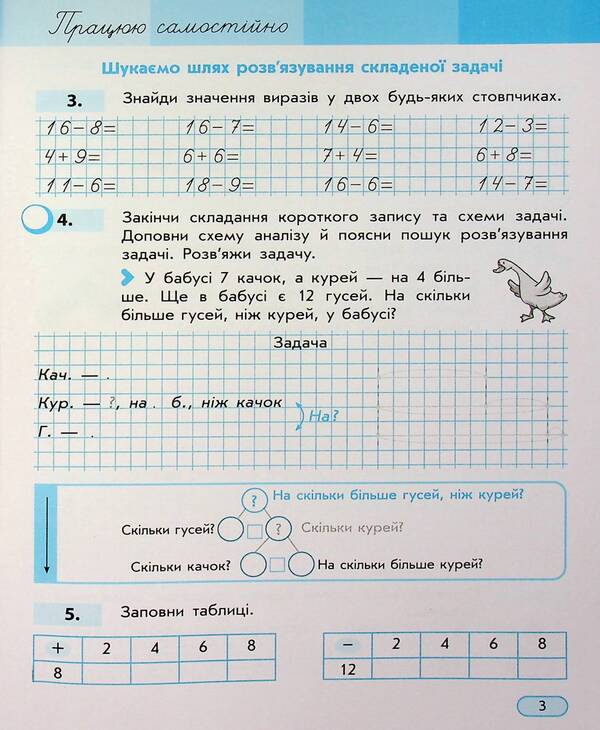 Працюю самостійно
Шукаємо шлях розв'язування складеної задачі
3. Знайди значення виразів у двох будь-яких стовпчиках.
16-8= 16-7= 14-6= 12-3=
4+9= 6+6= 7+4= 6+8=
11-6= 18-9= 16-6= 14-7=
4. Закінчи складання короткого запису та схеми задачі.
Доповни схему аналізу й поясни пошук розв'язування
задачі. Розв'яжи задачу.
У бабусі 7 качок, а курей — на 4 біль-
ше. Ще в бабусі є 12 гусей. На скільки
більше гусей, ніж курей, у бабусі?
Задача
Кач. — .
Кур. — ?, на . б., ніж качок
На?
Г. — .
? На скільки більше гусей, ніж курей?
Скільки гусей? ? Скільки курей?
Скільки качок? На скільки більше курей?
5. Заповни таблиці.
+ 2 4 6 8 − 2 4 6 8
8 12
3